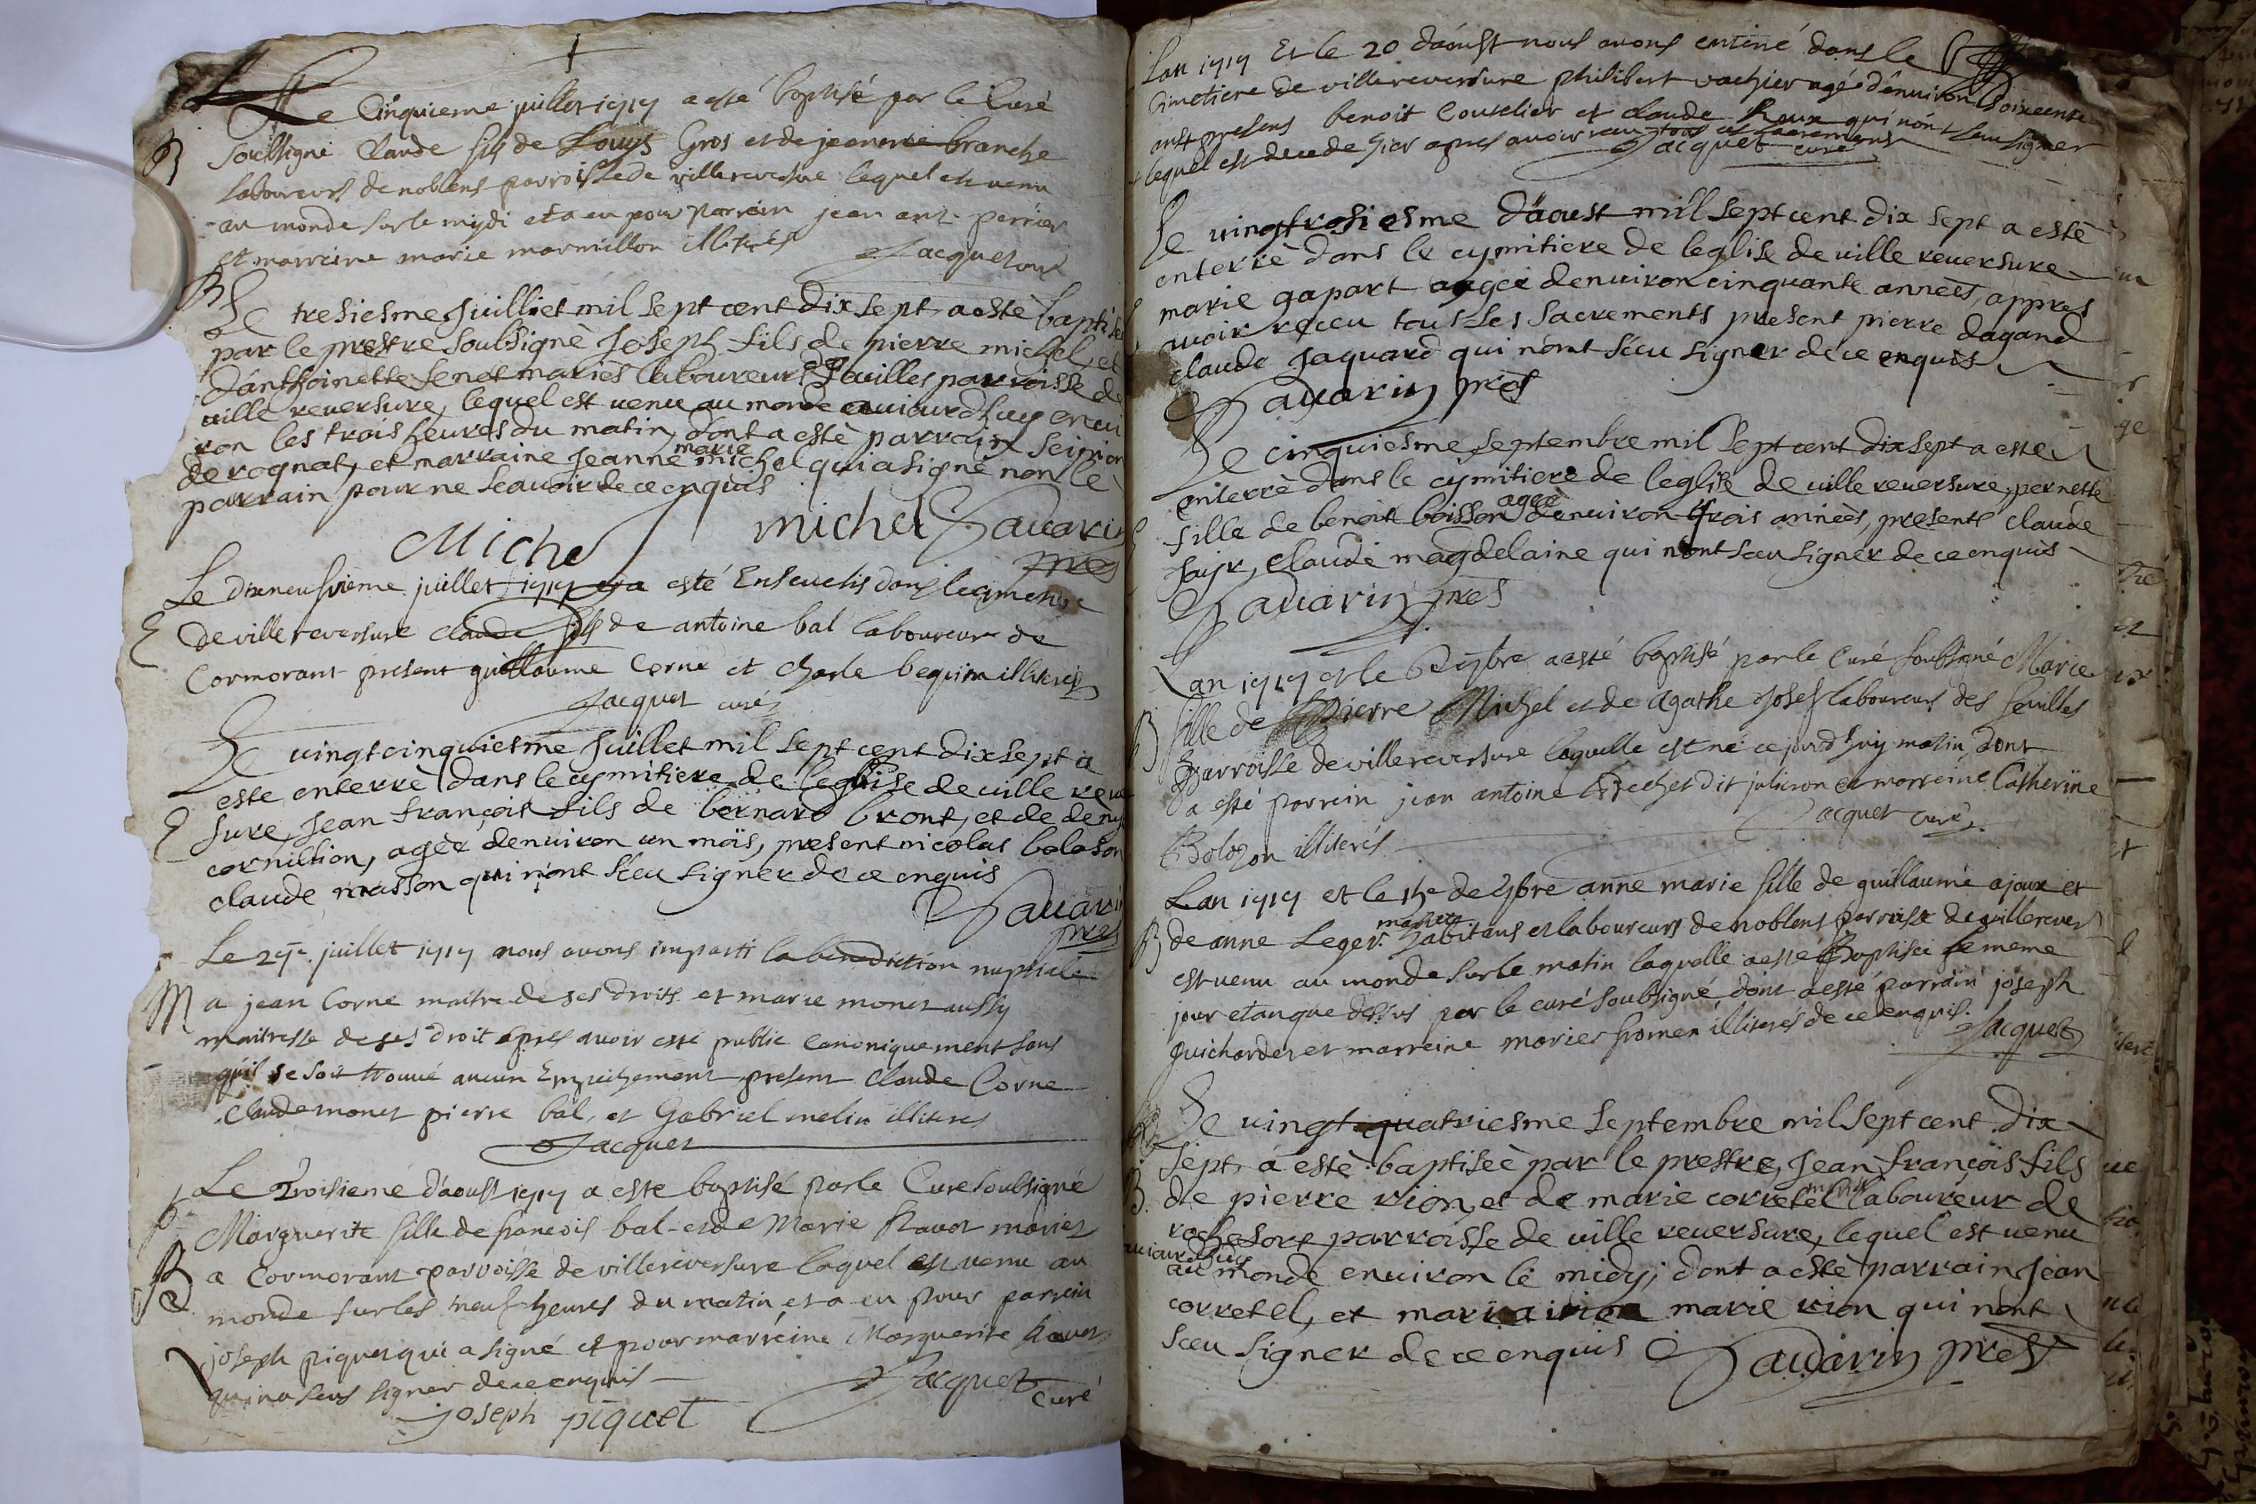 Le Cinquieme juillet 1717 a esté baptisé par le Curé
B
soubsigné Claude fils de Louys Gros et de jeanne branche
laboureurs de noblens parroisse de villereversure lequel est venu
au monde sur le mydi et a eu pour parrain jean ant. perrier
et marreine marie marmillon illiterés Jacquet curé
B
Le tresiesme Juilliet mil sept cent dix sept a esté baptisé
par le prestre soubsignè Joseph fils de pierre michel, et
d'anthoinette senet mariès laboureurs parroisse de
ville reversure, lequel est venu au monde aujourdhuy envi
ron les trois heures du matin, dont a estè parrain
de rognat, et marraine Jeanne marie michel qui a signè non le
parrain pour ne scavoir de ce enquis
michel Savarin
Miche pres
Le dixneufvieme juillet 1717 a esté Enseuelis dans le cimetiere
E
de villereversure claude fils de antoine bal laboureur de
Cormorant present guillaume Corne et charle beguin illiterés
Jacquet curé
Le vingtcinquiesme Juillet mil sept cent dix sept a
este enterrè dans le cymitiere de leglise de ville rever
E
sure, Jean françois fils de bernard bront, et de
cornillion, agèe denviron un mois, present nicolas boloson
claude masson qui n'ont sceu signer de ce enquis
Savarin
pres
Le juillet 1717 nous avons imparti la benediction nuptiale
M
a jean Corne maitre de ses droits et marie monet aussy
maitresse de ses droit apres avoir esté public canoniquement sans
quil se soit trouvé aucun Empeichement present Claude Corne
Claude monet pierre bal, et Gabriel melin illiteres
Jacquet
Le Troisieme d'aoust 1717 a este baptisé par le Curé soubsigné
Marguerite fille de francois bal et de Marie Ravot mariez
B
a Cormorant parroisse de villereversure laquel est venu au
monde sur les neuf heures du matin et a eu pour parrein
joseph piquet qui a signé et pour marreine Marguerite Ravot
qui na sceu signer de ce enquis Jacquet
Curé
joseph piquet
Lan 1717 Et le 20 d'aoust nous avons enterré dans le
Cimetiere de villereversure philibert vachier agé d'environ soixcente
ans presens benoit Coutelier et claude Roux qui n'ont sceu signer
lequel est decede hier apres avoir receu tous les sacrements
Jacquet curé
Le vingtrosiesme d'aoust mil sept cent dix sept a estè
enterrè dans le cymitiere de leglise de ville reversure
marie gapart aggeè denviron cinquante annees, appres
avoir receu tous les sacrements present pierre dagand
claude Jaquard qui n'ont sceu signer de ce enquis
Savarin pres
Le cinquiesme septembre mil sept cent dix sept a este
enterrè dans le cymitiere de leglise de ville reversure, pernette
E
fille de benoit boisson aggeè denviron trois annèes, presents claude
claude magdelaine qui n'ont sceu signer de ce enquis
Savarin pres
Lan 1717 et le 6 7bre a esté baptisé par le Curé soubsigné Marie
B
fille de Pierre Michel et de agathe josef laboureurs des feuilles
Parroisse de villereversure laquelle est né ce jourd'huy matin, dont
a esté parrein jean antoine dit et marreine Catherine
Bolozon illiterés Jacquet curé
Lan 1717 et le de 7bre anne marie fille de guillaume ajoux et
B
de anne Leger mariez habitans et laboureurs de noblens parroisse de villerever
est venu au monde sur le matin laquelle a esté Baptisée le meme
jour et an que dessus par le curé soubsigné, dont a esté parrain joseph
guichardet et marreine maries fromen illiterés de ce enquis. Jacquet
Le vingt quatriesme septembre mil sept cent dix
sept a estè baptiseè par le prestre, Jean françois fils
B
de pierre rion, et de marie corretel mariès laboureur de
rochefort parroisse de ville reversure, lequel est venu
aujourdhuy
au monde environ le midy, dont a estè parrain Jean
corretel, et marraine marie rion qui n'ont
sceu signer de ce enquis Savarin prest